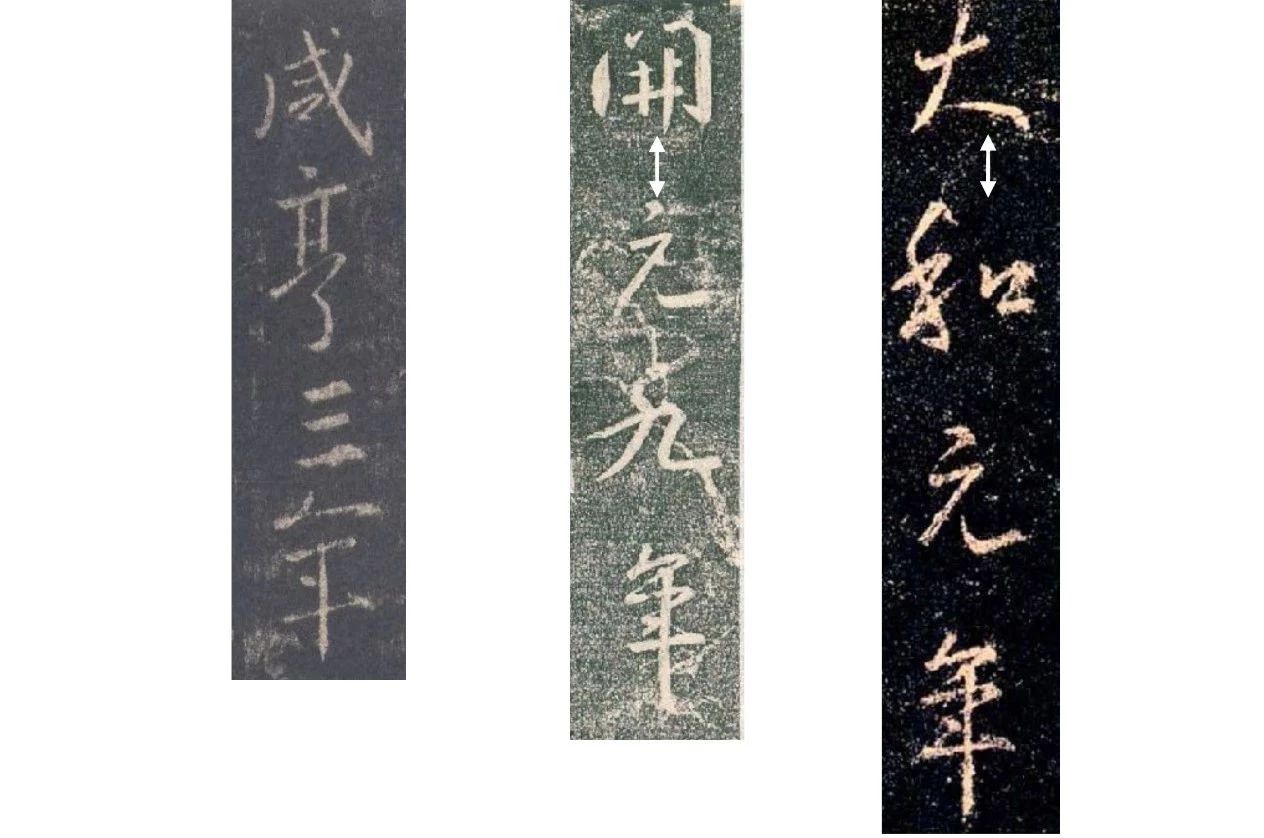 咸亨三年
開元九年
大和元年